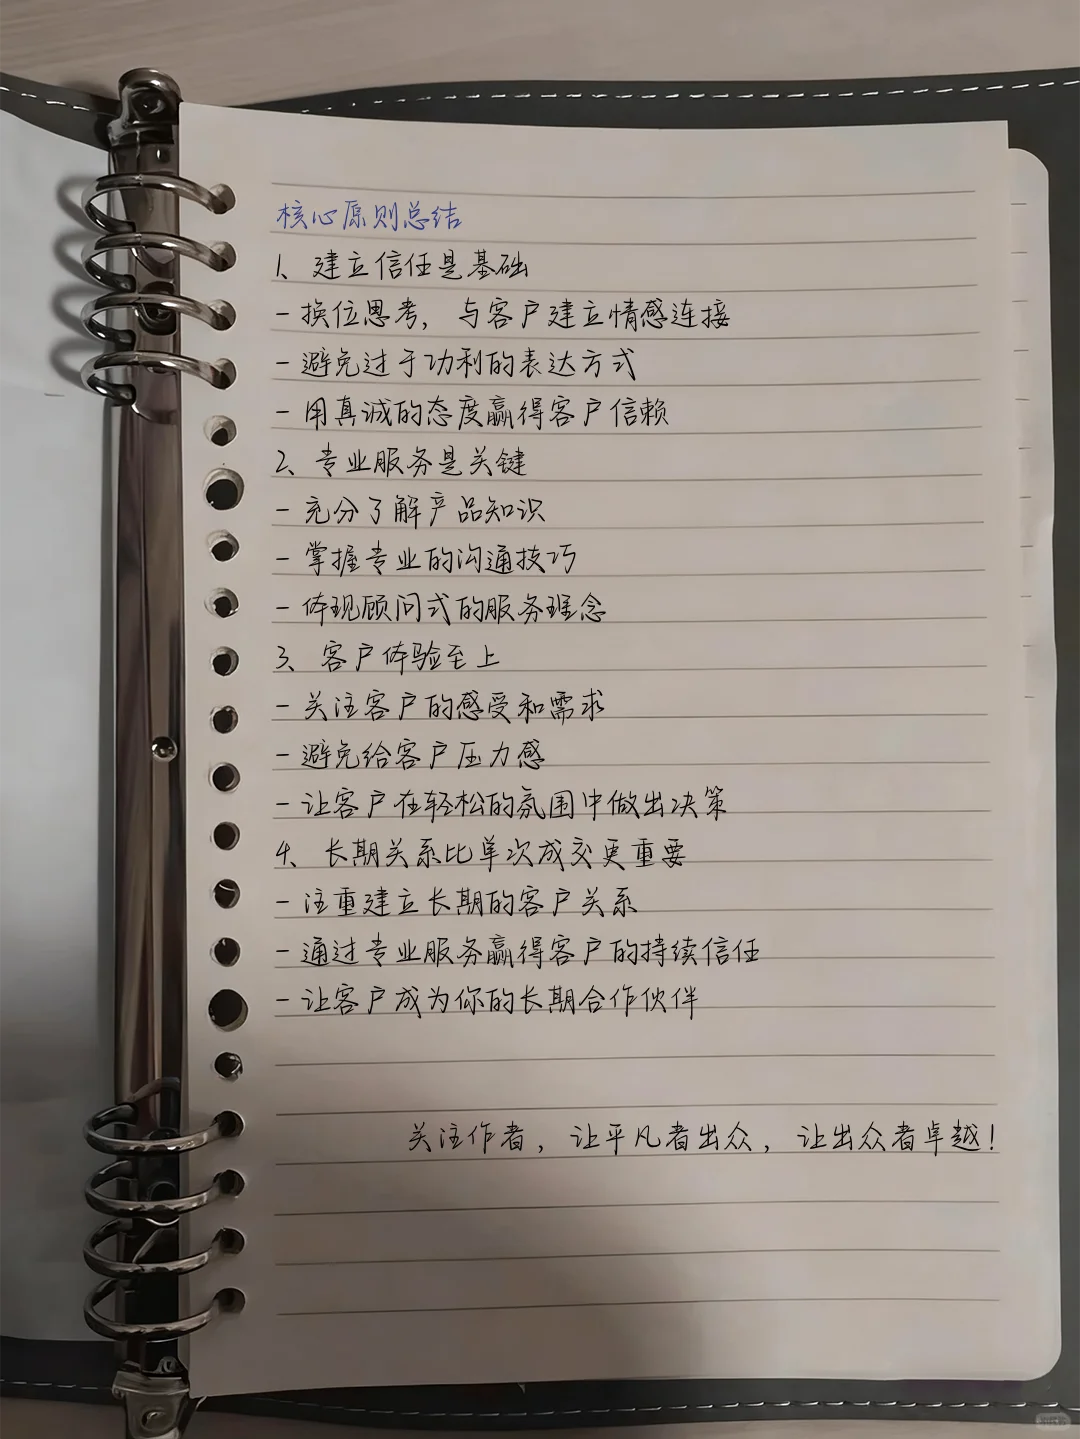 核心原则总结
1、建立信任是基础
- 换位思考，与客户建立情感连接
- 避免过于功利的表达方式
- 用真诚的态度赢得客户信赖
2、专业服务是关键
- 充分了解产品知识
- 掌握专业的沟通技巧
- 体现顾问式的服务理念
3、客户体验至上
- 关注客户的感受和需求
- 避免给客户压力感
- 让客户在轻松的氛围中做出决策
4、长期关系比单次成交更重要
- 注重建立长期的客户关系
- 通过专业服务赢得客户的持续信任
- 让客户成为你的长期合作伙伴
关注作者，让平凡者出众，让出众者卓越！